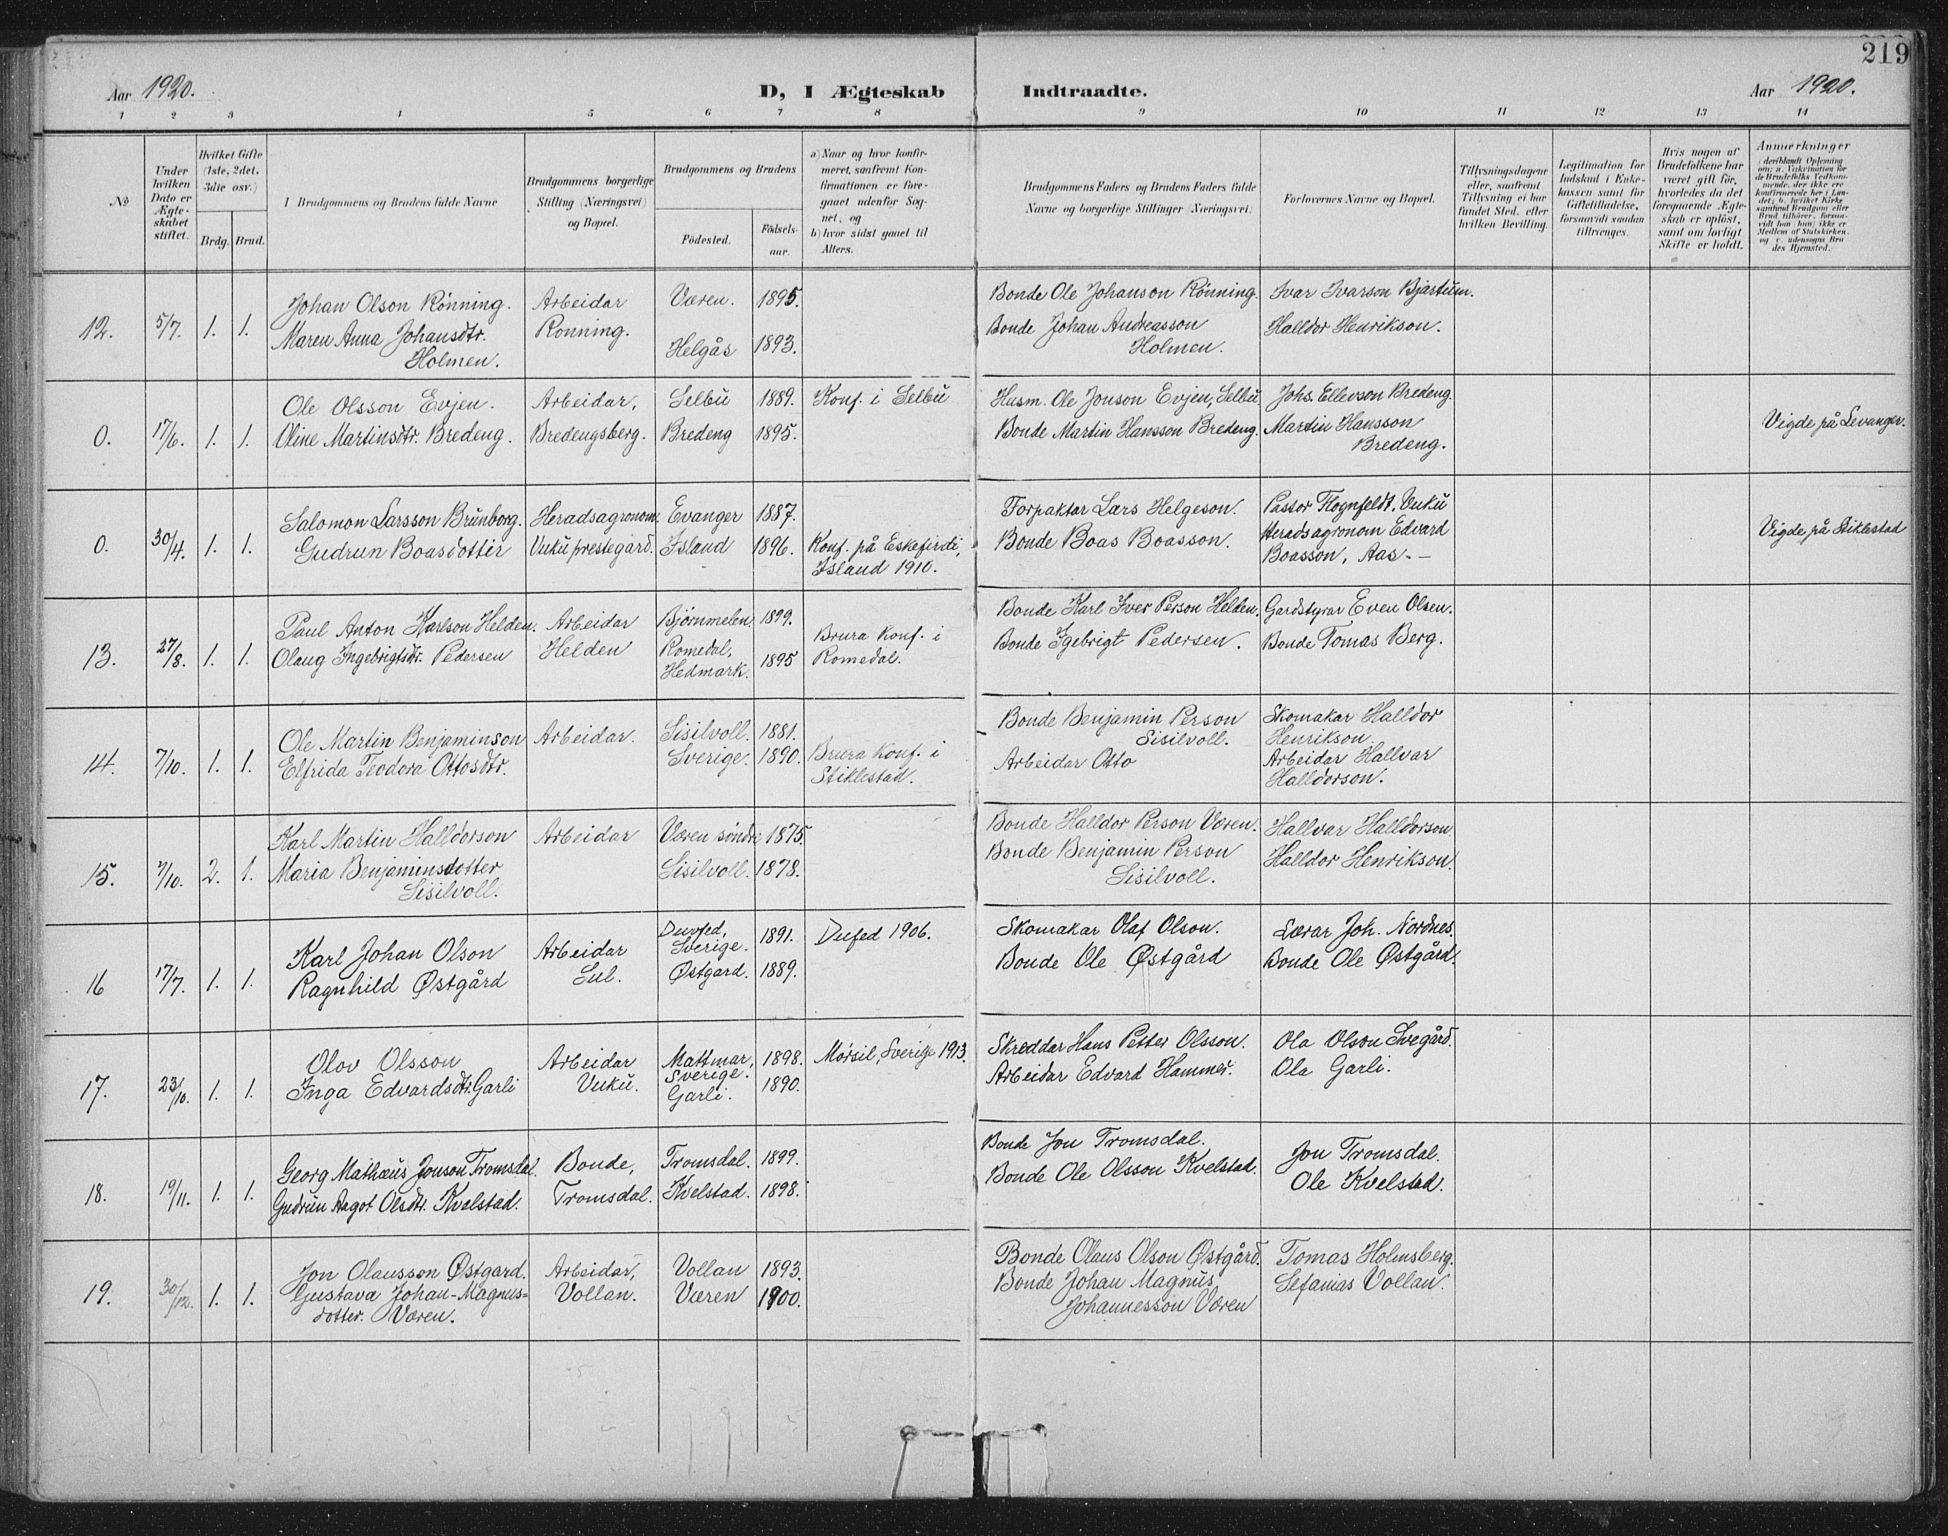 219
Aar 1920.
D, I Ægteskab Indtraadte.
Aar 1920.
1 2 3 4 5 6 7 8 9 10 11 12 13 14
№
Under hvilken Dato er Ægteskabet stiftet.
Hvilket Gifte (1ste, 2det, 3die osv.)
Brdg. Brud.
I Brudgommens og Brudens fulde Navne
Brudgommens borgerlige Stilling (Næringsvei) og Bopæl.
Brudgommens og Brudens
Födested.
Födselsaar.
a) Naar og hvor konfirmeret, samt med Konfirmationen er foregaaet udenfor Sognet, og
b) hvor sidst gaaet til Alters.
Brudgommens Faders og Brudens Faders fulde Navne og borgerlige Stillinger (Næringsvei)
Forlovernes Navne og Bopæl.
Tillysningsdagene eller, saafremt Tillysning ei har fundet Sted, efter hvilken Bevilling.
Legitimation for Indskud i Enkekassen samt for Giftetilladelse, forsaavidt saadan tiltrænges.
Hvis nogen af Brudefolkene har været gift før, hvorledes da det foregaaende Ægteskab er oplöst, samt om lovligt Skifte er holdt.
Anmærkninger
12. 5/7. 1. 1. Johan Olson Rönning. Arbeidar Væren. 1895. Bonde Ole Johanson Rönning. Ivar Ivarson Bjartum.
Maren Anna Johansdtr. Holmen. Ronning. Helgås 1893. Bonde Johan Andreasson Holmen. Halldor Henrikson.
0. 17/6. 1. 1. Ole Olsson Evjen. Arbeidar, Selbu 1889. Konf. i Selbu Husm. Ole Jonson Evjen, Selbu. Johs. Ellevson Bredeng
Oline Martinsdtr. Bredeng. Bredengsberg. Bredeng 1895. Bonde Martin Hansson Bredeng. Martin Hansson Bredeng. Vigde på Levanger.
0. 30/4. 1. 1. Salomon Larsson Brunborg. Heradsagronom. Evanger 1887. Forpaktar Lars Helgeson. Pastor Hognfeldt, Vuku
Gudrun Boasdottir Vuku prestegard. Island 1896. Konf. på Eskefirdi, Island 1910. Bonde Boas Boasson. Heradsagronom Edvard Boasson, Aas. - Vigde på Stiklestad
13. 27/8. 1. 1. Paul Anton Karlson Helden. Arbeidar Bjørnmelen 1899. Bonde Karl Iver Person Helden. Gardstyrar Even Olsen.
Olaug Ingebrigtsdtr. Pedersen Helden Romedal, Hedmark. 1895 Brura Konf. i Romedal. Bonde Igebrigt Pedersen. Bonde Tomas Berg.
14. 7/10. 1. 1. Ole Martin Benjaminson Arbeidar. Sisilvoll. 1881. Bonde Benjamin Person Sisilvoll. Skomakar Halldor Henrikson.
Elfrida Teodora Ottosdtr. Sverige. 1890. Brura Konf. i Stiklestad. Arbeidar Otto Arbeidar Hallvar Halldorson.
15. 7/10. 2. 1. Karl Martin Halldorson Arbeidar Væren söndre 1875. Bonde Halldor Person Væren. Hallvar Halldorson
Maria Benjaminsdotter Sisilvoll. Sisilvoll. 1878. Bonde Benjamin Person Sisilvoll. Halldor Henrikson.
16 17/7. 1. 1. Karl Johan Olson Arbeidar Duved, Sverige. 1891. Dufed 1906. Skomakar Olaf Olson. Lærar Joh. Nordnes.
Ragnhild Østgård Sul. Østgard. 1889. Bonde Ole Østgård Bonde Ole Østgård.
17. 23/10. 1. 1. Olov Olsson Arbeidar Mattmar, Sverige. 1898. Mörsil, Sverige 1913. Skreddar Hans Petter Olsson. Ola Olson Svegård.
Inga Edvardsdtr. Garli Vuku. Garli. 1890. Arbeidar Edvard Hammer. Ola Garli.
18. 19/11. 1. 1. Georg Mathæus Jonson Tromsdal. Bonde, Tromsdal. 1899. Bonde Jon Tromsdal. Jon Tromsdal.
Gudrun Aagot Olsdtr. Kvelstad. Tromsdal. Kvelstad. 1898. Bonde Ole Olsson Kvelstad. Ole Kvelstad.
19. 30/12. 1. 1. Jon Olausson Østgard. Arbeidar, Vollan 1893. Bonde Olaus Olson Østgård. Tomas Holmsberg.
Gustava Johan-Magnus=dotter. Væren. Vollan. Væren 1900. Bonde Johan Magnus Johannesson Væren Sefanias Vollan.